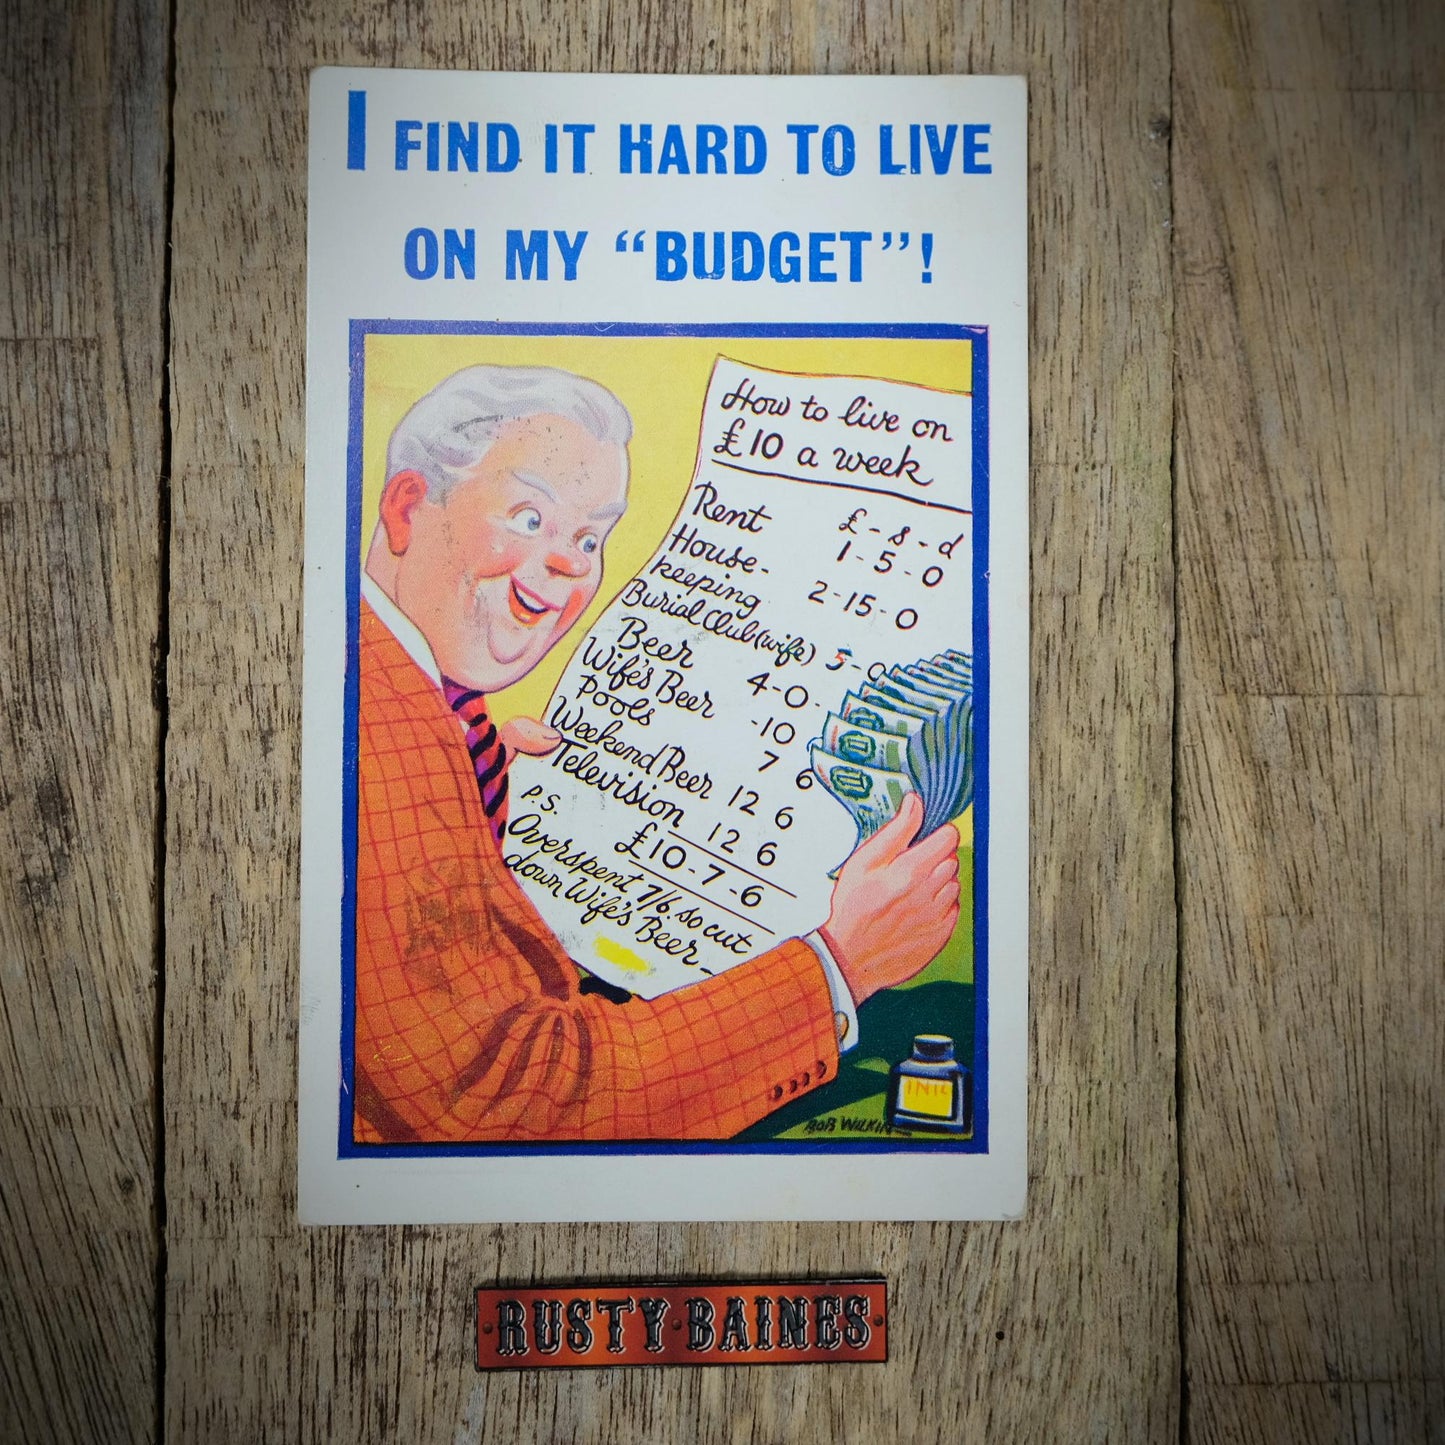 I FIND IT HARD TO LIVE
ON MY “BUDGET”!
How to live on
£10 a week
£ - s - d
Rent 1 - 5 - 0
House-
keeping 2 - 15 - 0
Burial Club (wife) 5 - 0
Beer 4 - 0 -
Wife's Beer - 10
Pools 7 6
Weekend Beer 12 6
Television 12 6
£10 - 7 - 6
P.S.
Overspent 7/6 so cut
down Wife's Beer -
INK
BOB WILKIN
RUSTY·BAINES